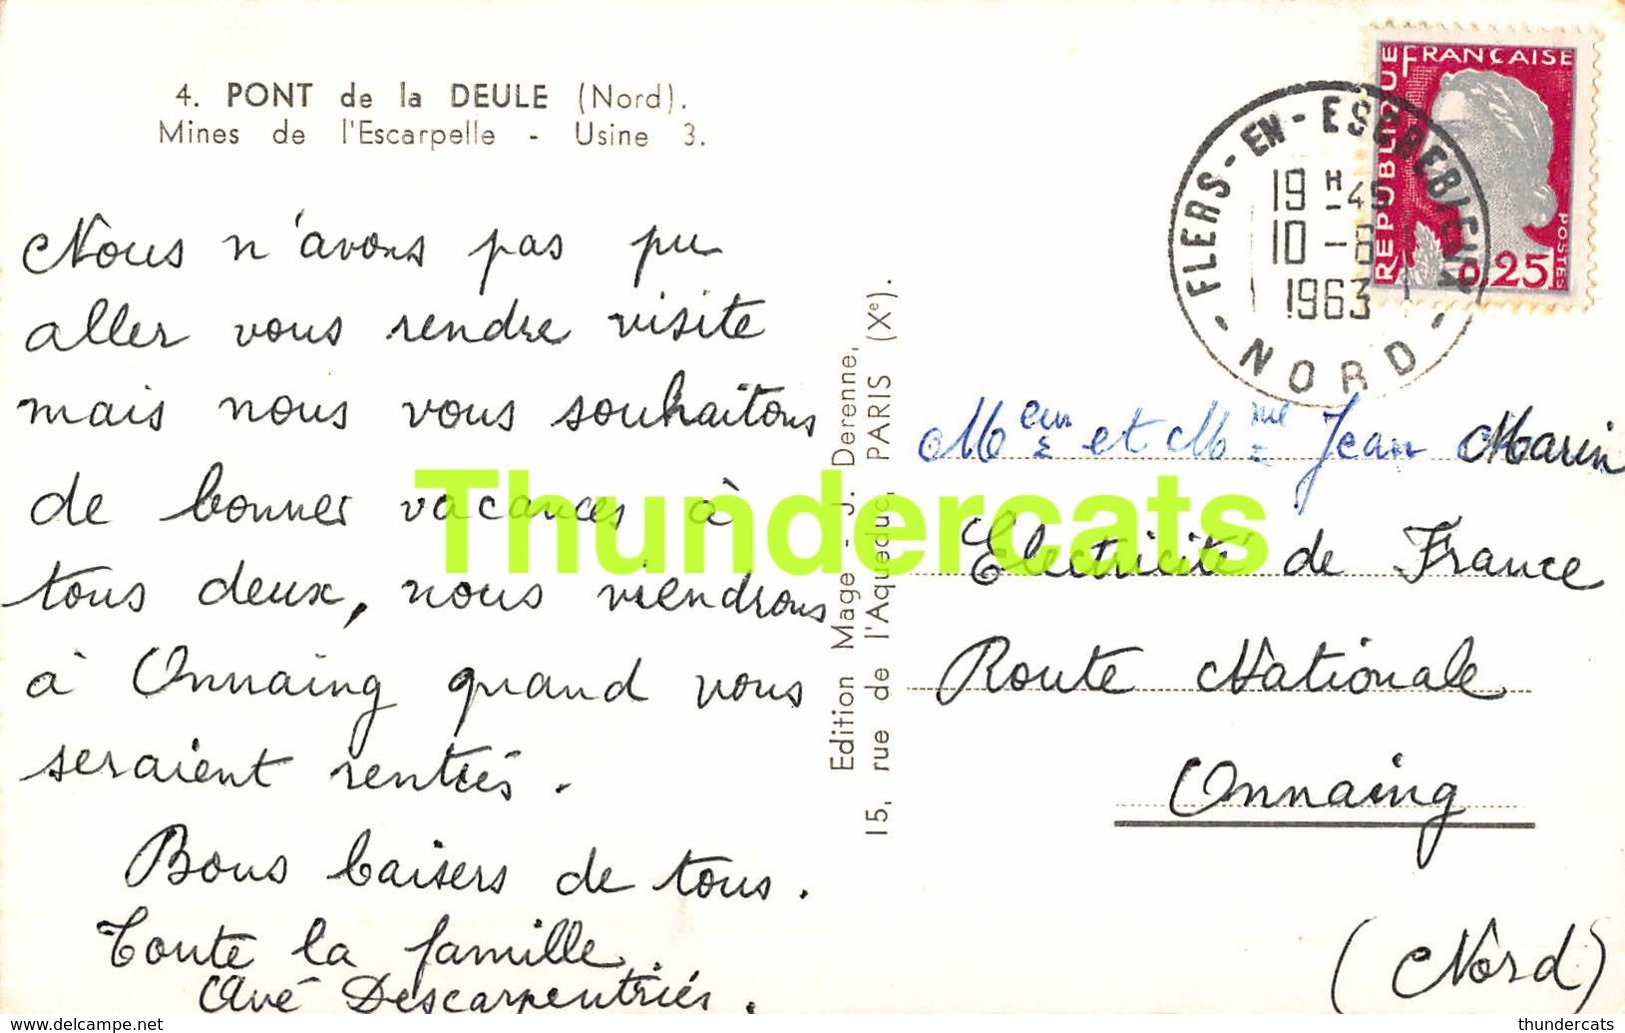 4. PONT de la DEULE (Nord).
Mines de l'Escarpelle - Usine 3.
Nous n'avons pas pu
aller vous rendre visite
mais nous vous souhaitons
de bonnes vacances à
tous deux, nous viendrons
à Onnaing quand vous
seraient rentrés.
Bons baisers de tous.
Toute la famille.
Edition Mage - J. Derenne,
15, rue de l'Aqueduc, PARIS (Xe).
REPUBLIQUE FRANÇAISE
POSTES
0.25
FLERS-EN-ESCREBIEUX
19 H 45
10 - 8
1963
- NORD -
Meur et Mme Jean Marin
Electricité de France
Route Nationale
Onnaing
(Nord)
Thundercats
delcampe.net
thundercats